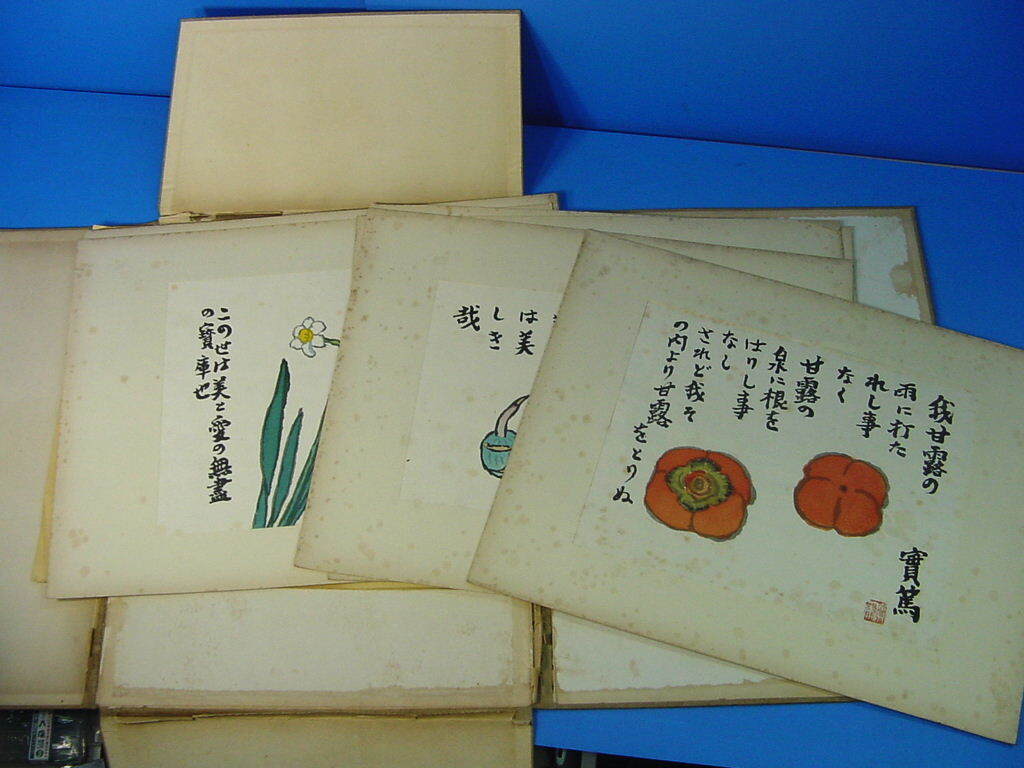 我甘露の
雨に打た
れし事
なく
甘露の
泉に根を
はりし事
なし
されど我そ
の内より甘露
をとりぬ
實篤
は美
しき
哉
この世は美と愛の無盡
の寶庫也